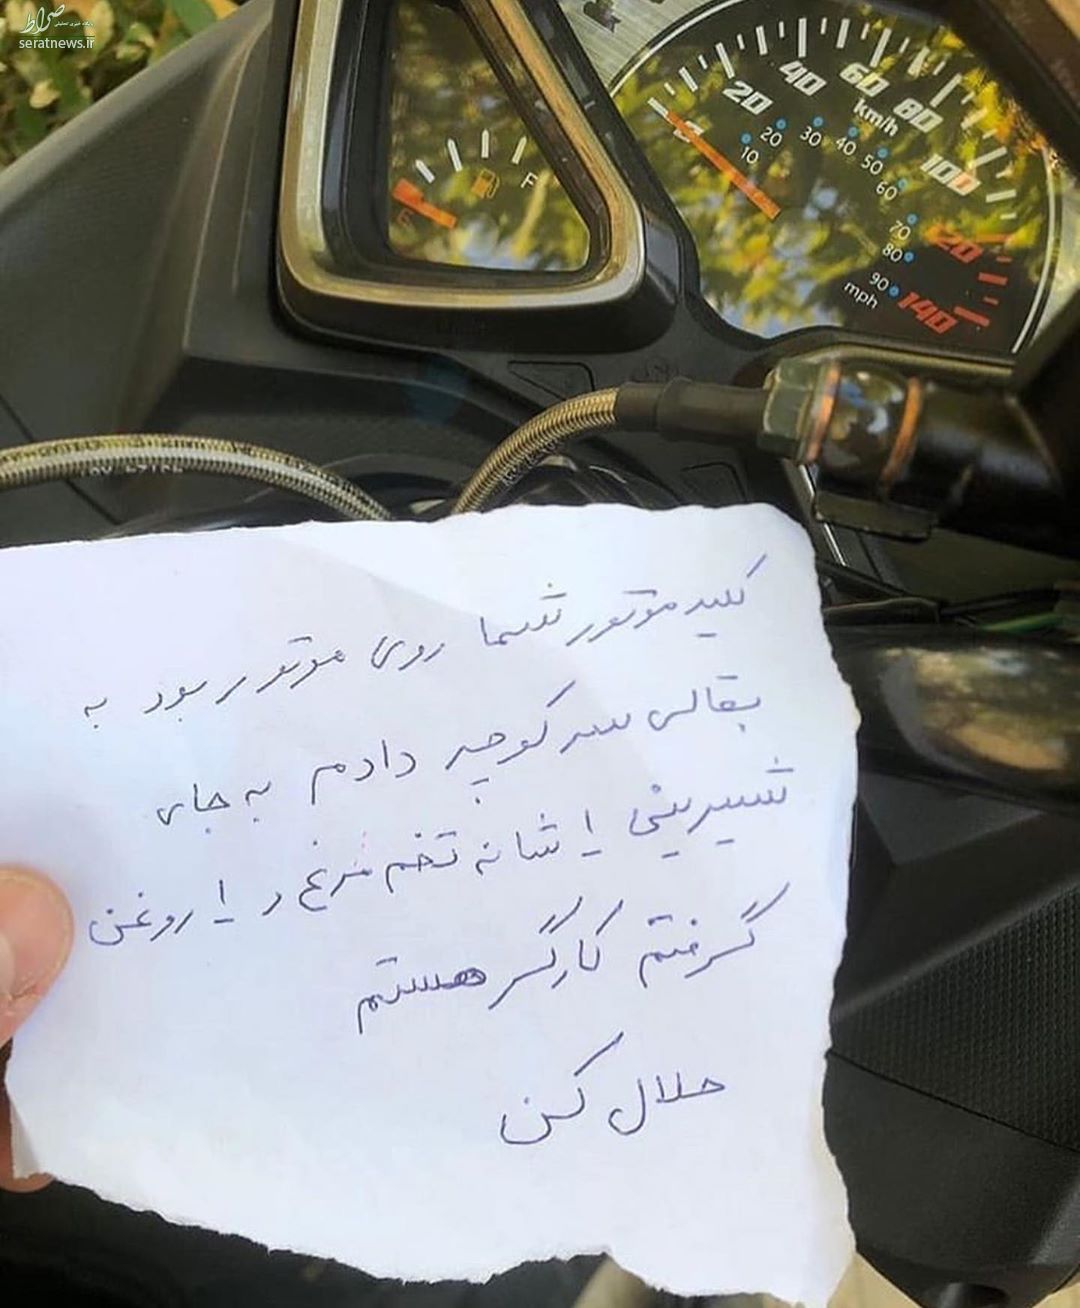 صراط
پایگاه خبری تحلیلی
seratnews.ir
20
40
60
80
100
120
140
km/h
10
20
30
40
50
60
70
80
90
mph
E
F
کلید موتور شما روی موتور بود به
بقالی سر کوچه دادم به جای
شیرینی ۱ شانه تخم مرغ و ۱ روغن
گرفتم کارگر هستم
حلال کن